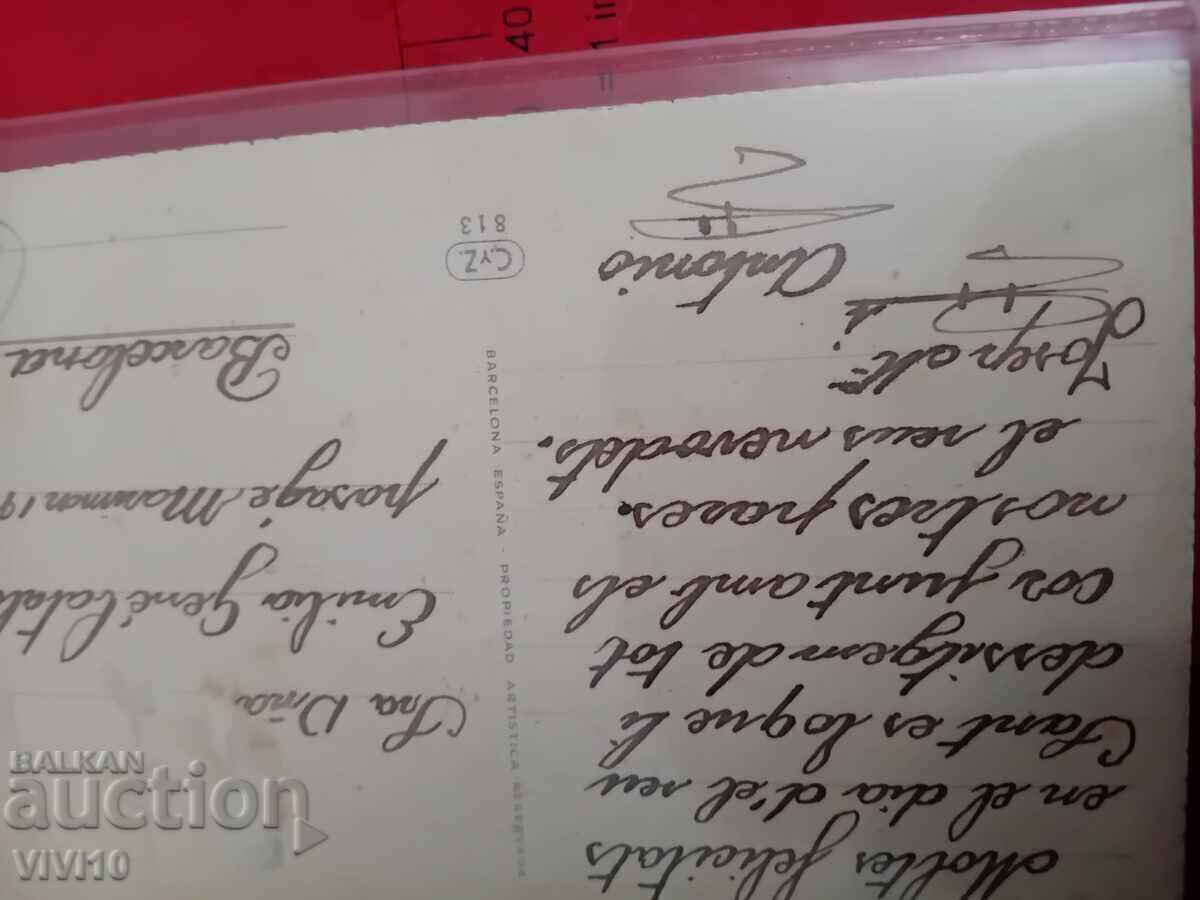 Moltes felicitats
en el dia d'el seu
Sant es loque li
dessitgem de tot
cor junt amb els
nostres pares.
el seus nevodets.
Josep Mª. i
Antonio
CYZ.
813
BARCELONA ESPAÑA - PROPIEDAD ARTISTICA RESERVADA
Sra Dña
Emilia Gené
pasage. Marimon 19
Barcelona
40
= 1 in
BALKAN
auction
VIVI10